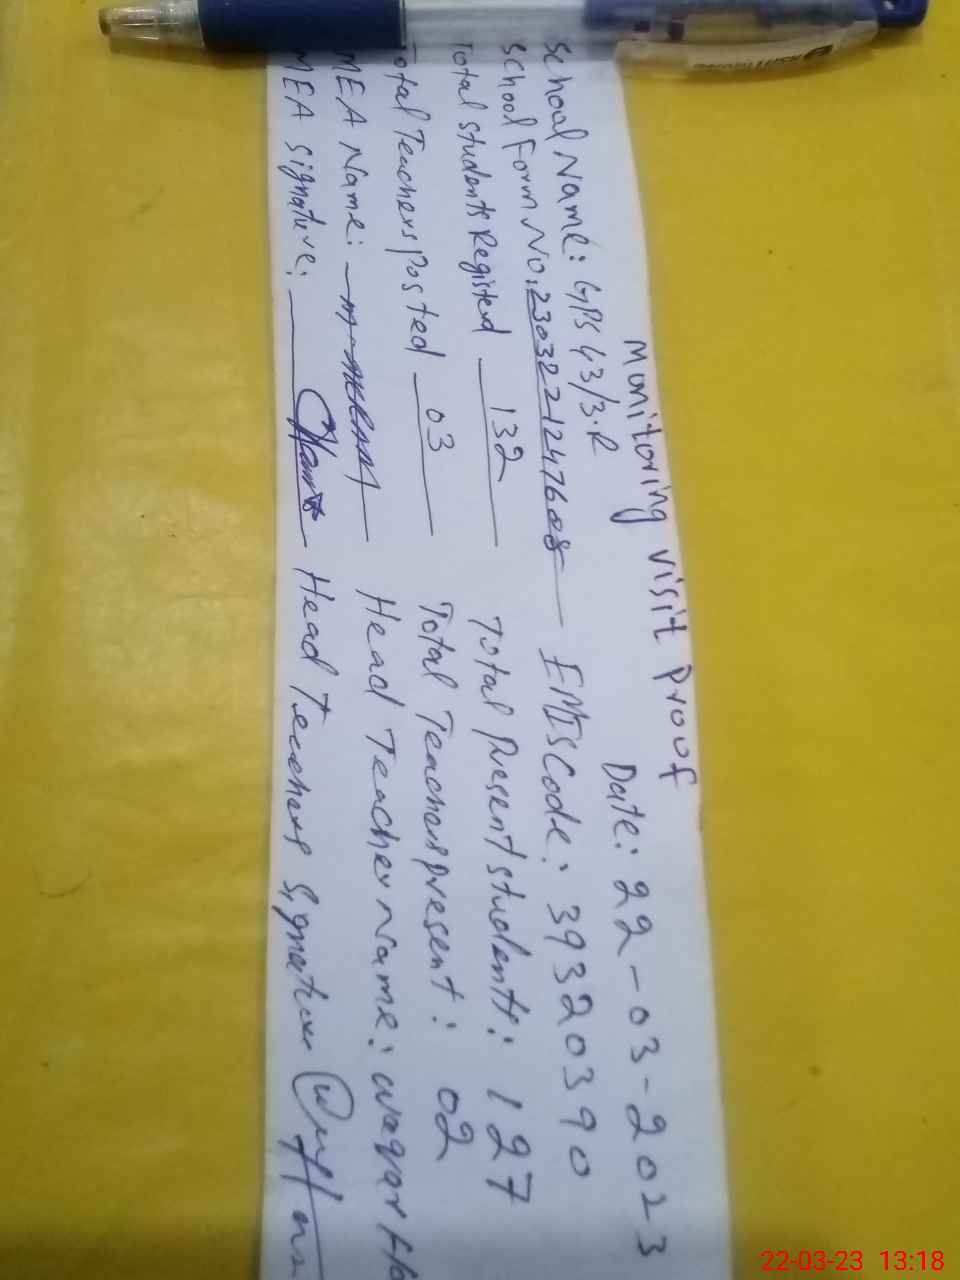 Monitoring visit Proof
Date: 22-03-2023
School Name: GPS 43/3.R
School Form No: 2303221247608 EMIS Code: 39320390
Total students Registerd 132 Total Present students: 127
Total Teachers Posted 03 Total Teachers present: 02
MEA Name: Head Teacher name: waqar
MEA signature: Head Teachers signature
22-03-23 13:18